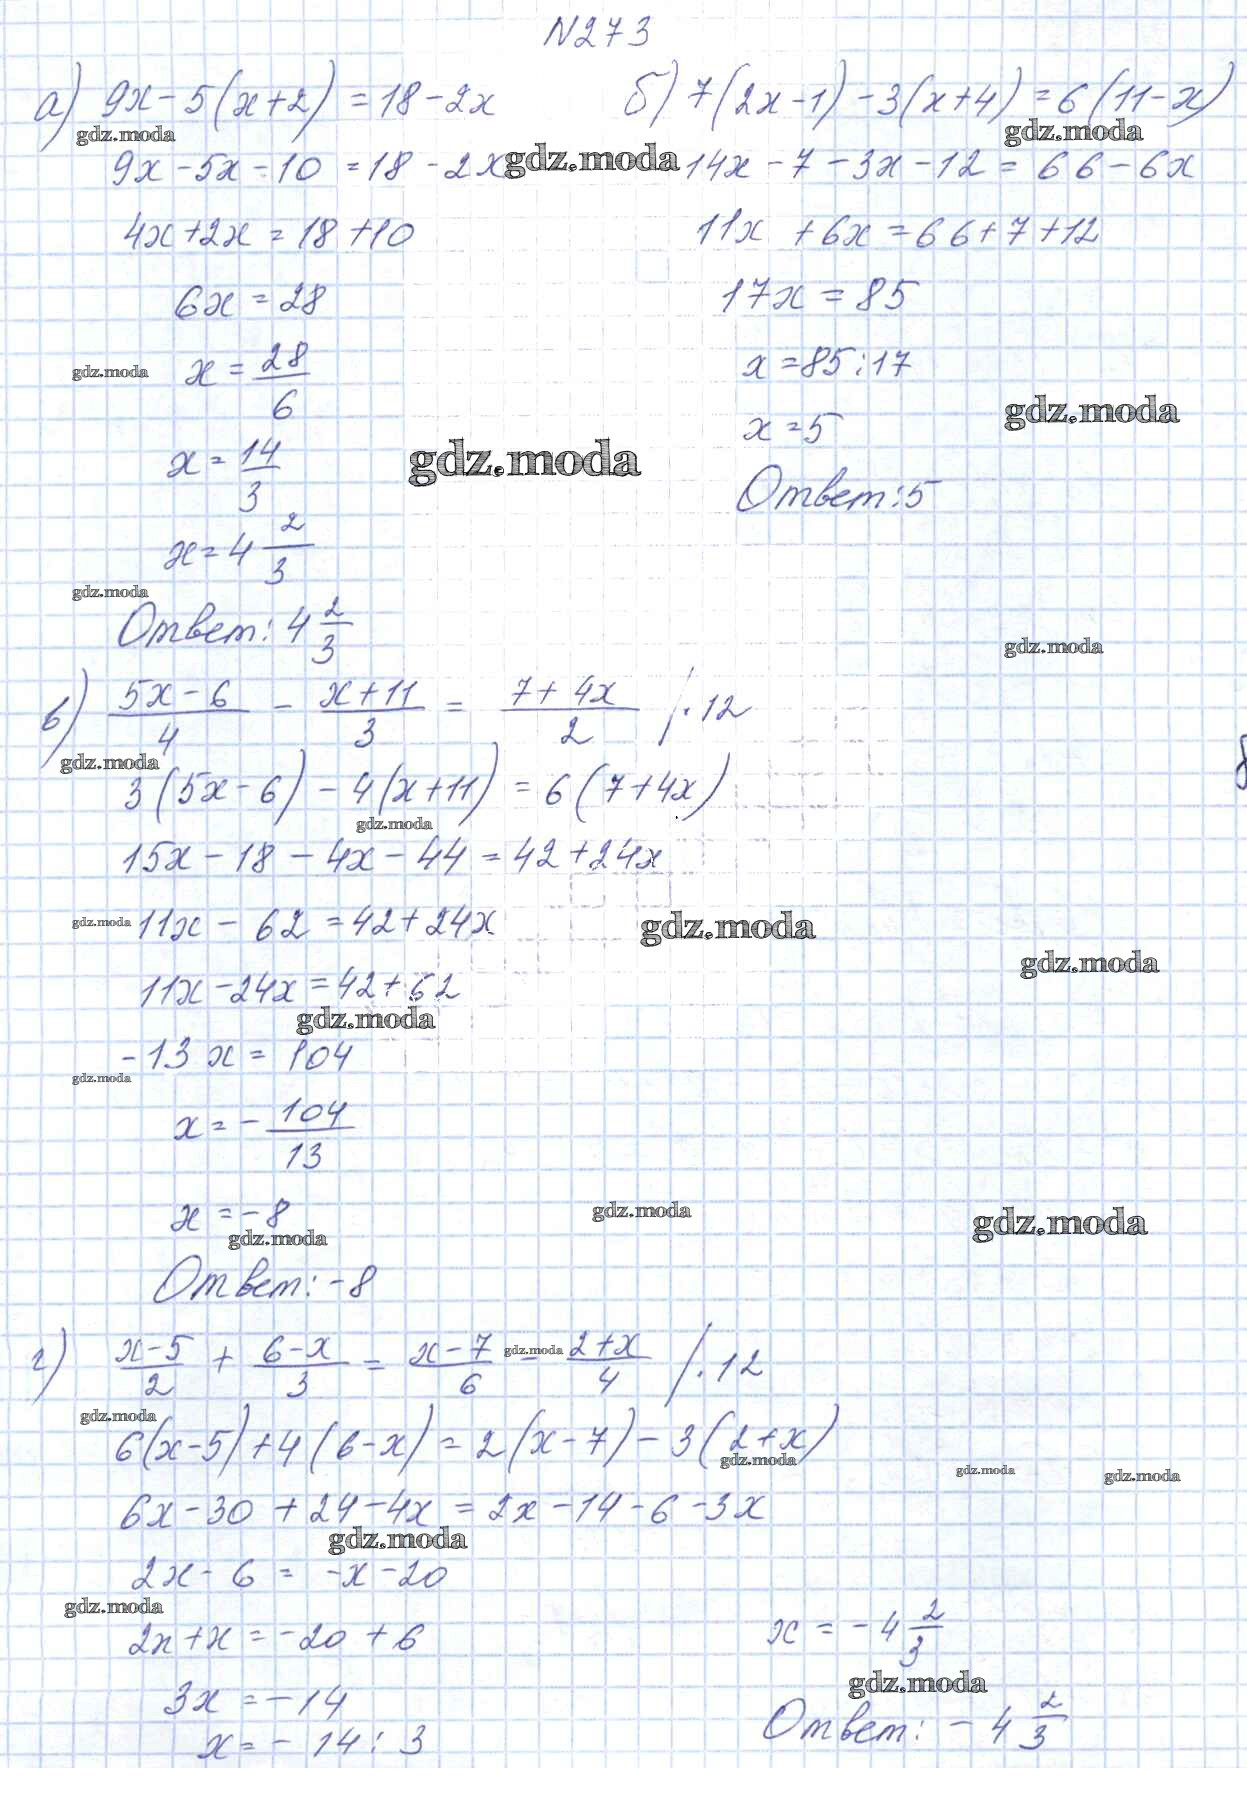 N273
а) 9x - 5(x+2) = 18 - 2x
9x - 5x - 10 = 18 - 2x
4x + 2x = 18 + 10
6x = 28
x = 28/6
x = 14/3
x = 4 2/3
Ответ: 4 2/3
б) 7(2x-1) - 3(x+4) = 6(11-x)
14x - 7 - 3x - 12 = 66 - 6x
11x + 6x = 66 + 7 + 12
17x = 85
x = 85:17
x = 5
Ответ: 5
в) (5x-6)/4 - (x+11)/3 = (7+4x)/2 /·12
3(5x-6) - 4(x+11) = 6(7+4x)
15x - 18 - 4x - 44 = 42 + 24x
11x - 62 = 42 + 24x
11x - 24x = 42 + 62
-13x = 104
x = - 104/13
x = -8
Ответ: -8
г) (x-5)/2 + (6-x)/3 = (x-7)/6 - (2+x)/4 /·12
6(x-5) + 4(6-x) = 2(x-7) - 3(2+x)
6x - 30 + 24 - 4x = 2x - 14 - 6 - 3x
2x - 6 = -x - 20
2x + x = -20 + 6
3x = -14
x = -14:3
x = -4 2/3
Ответ: -4 2/3
gdz.moda